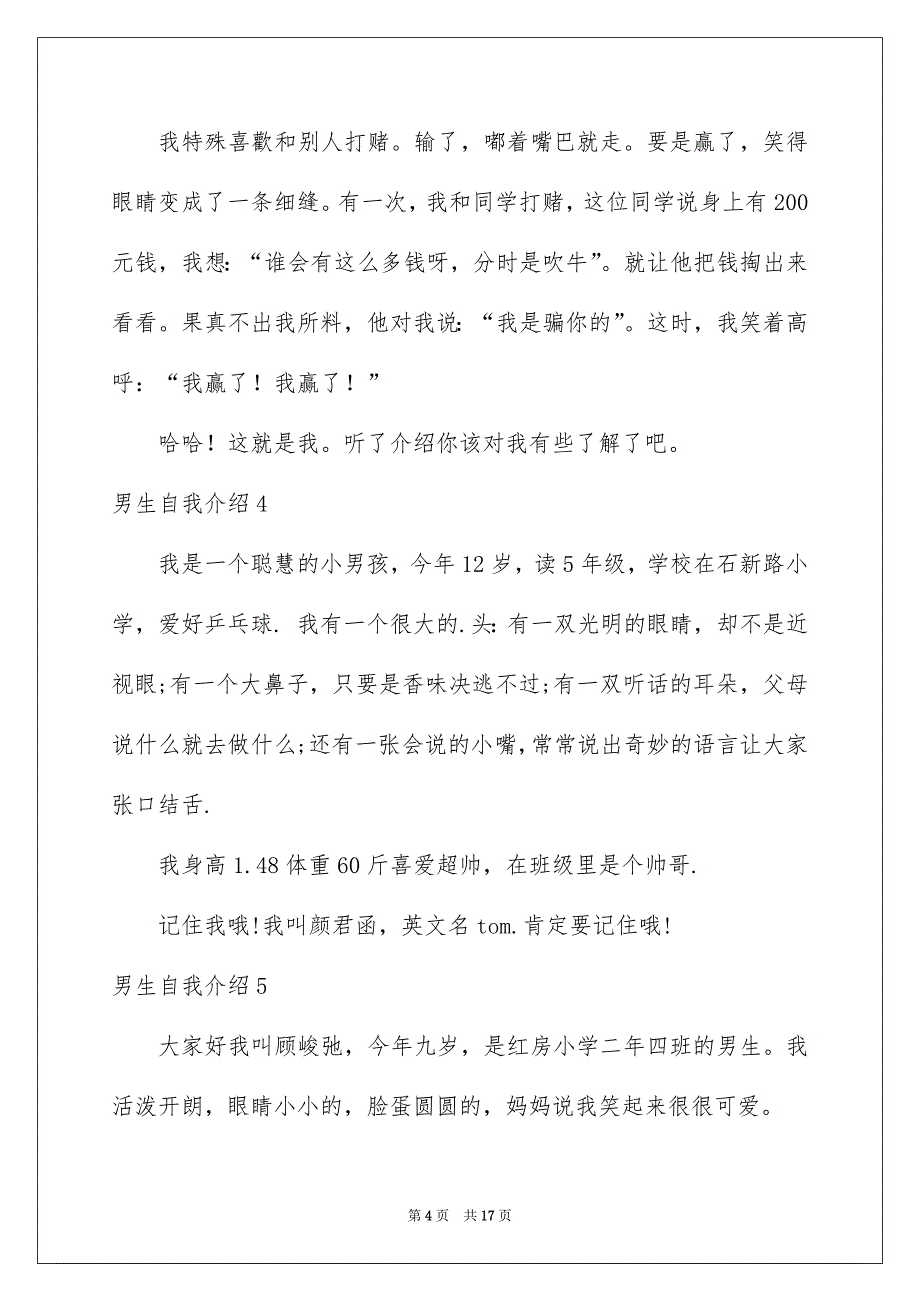 我特殊喜歡和别人打赌。输了，嘟着嘴巴就走。要是赢了，笑得
眼睛变成了一条细缝。有一次，我和同学打赌，这位同学说身上有 200
元钱，我想：“谁会有这么多钱呀，分时是吹牛”。就让他把钱掏出来
看看。果真不出我所料，他对我说：“我是骗你的”。这时，我笑着高
呼：“我赢了！我赢了！”
哈哈！这就是我。听了介绍你该对我有些了解了吧。
男生自我介绍 4
我是一个聪慧的小男孩，今年 12 岁，读 5 年级，学校在石新路小
学，爱好乒乓球. 我有一个很大的.头：有一双光明的眼睛，却不是近
视眼;有一个大鼻子，只要是香味决逃不过;有一双听话的耳朵，父母
说什么就去做什么;还有一张会说的小嘴，常常说出奇妙的语言让大家
张口结舌.
我身高 1.48 体重 60 斤喜爱超帅，在班级里是个帅哥.
记住我哦!我叫颜君函，英文名 tom.肯定要记住哦!
男生自我介绍 5
大家好我叫顾峻弛，今年九岁，是红房小学二年四班的男生。我
活泼开朗，眼睛小小的，脸蛋圆圆的，妈妈说我笑起来很很可爱。
第 4 页 共 17 页